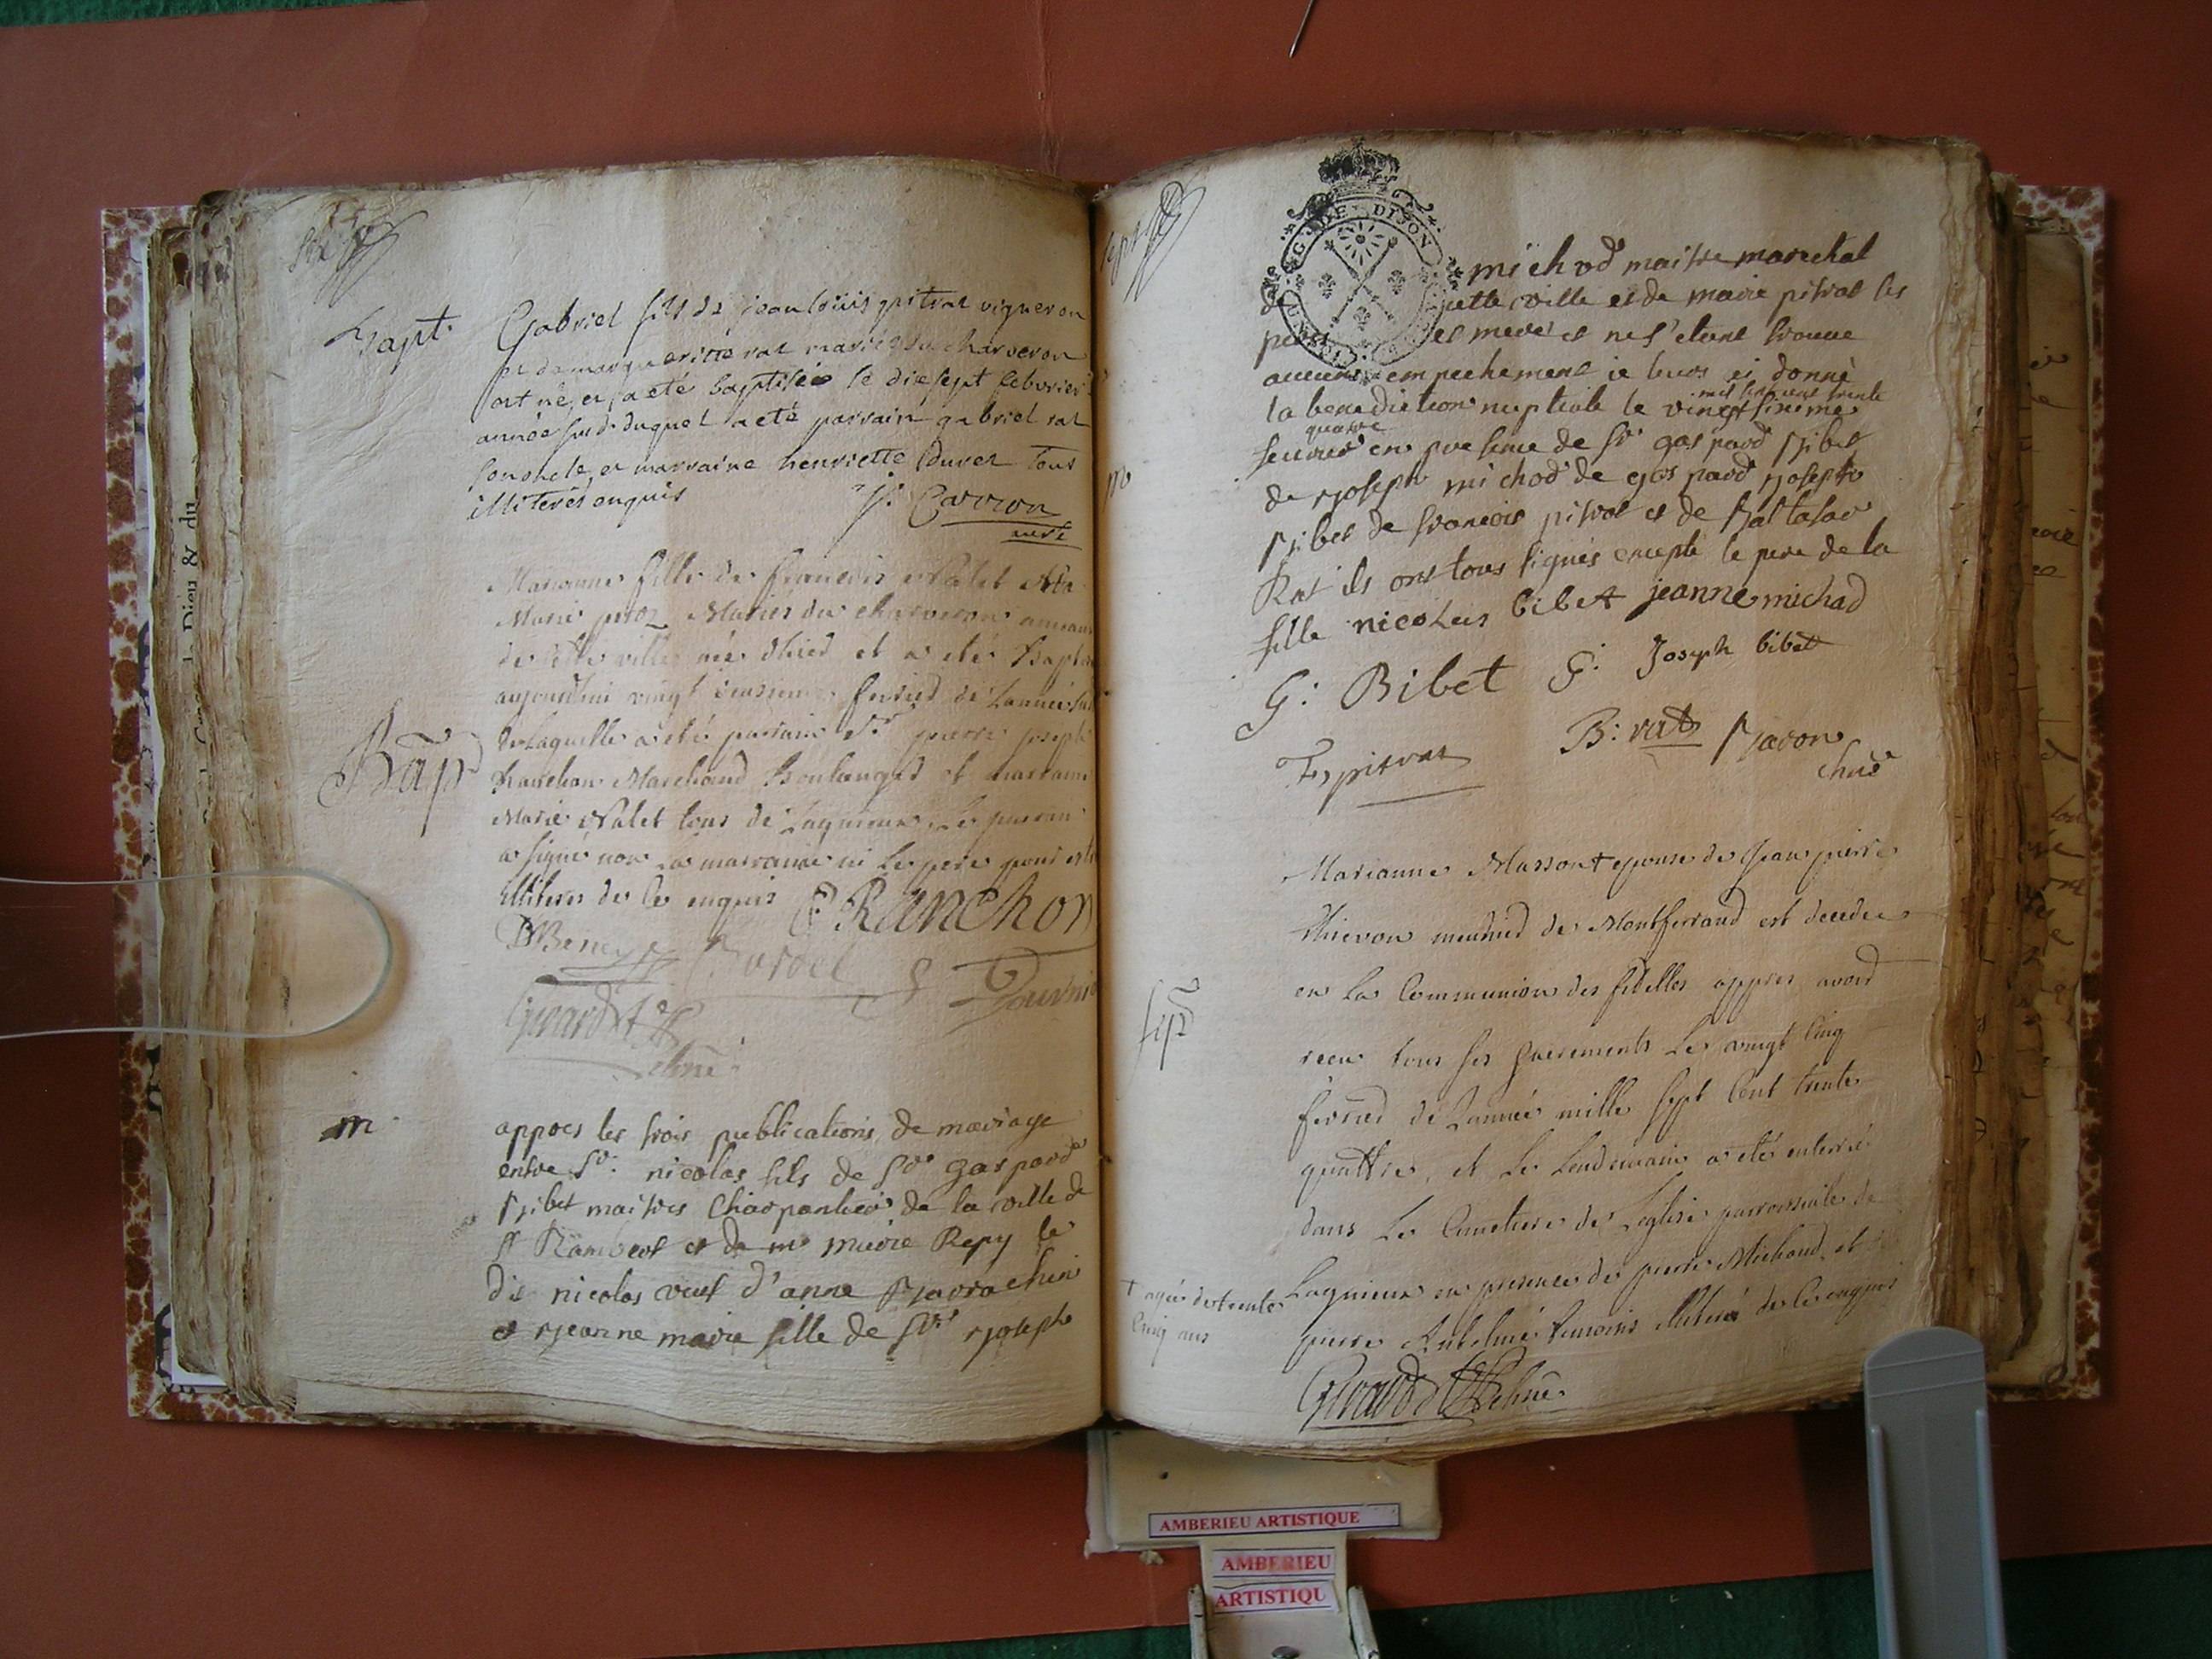 Bapt.
Gabriel fils de jean loüis pitrat vigneron
et de margueritte rat mariés du charveron
est né, et a eté baptisée le dix sept febvrier
année sus d. duquel a eté parrain gabriel rat
son oncle, et marraine henriette duret tous
illiterés enquis
J. Carron
curé
Bap
Marianne fille de francois Valet et de
Marie mariés du charveron annexe
de cette ville née d'hier et a eté baptisée
aujourdhui vingt fevrier de l'année
de laquelle a eté parrain Sr pierre joseph
Ranchon Marchand Boulanger et marraine
Marie Valet tous de Lagnieux, Le parrain
a signé non La marraine ni Le pere pour estre
illiteres de ce enquis
P Ranchon
Girard
chne
m
appres les trois publications de mariage
entre Sr. nicolas fils de Sr gaspard
Bibet maitres Charpantier de la ville de
St Rambert et de marie Repy le
dit nicolas veuf d'anne
et jeanne marie fille de Sr joseph
michod maitre marechal
de cette ville et de marie pitrat ses
pere et mere et ne s'etant trouvé
aucuns empechement je leurs ei donné
la benediction nuptiale le vingt
mil sept cent trente
quatre
fevrier en presence de Sr gaspard Bibet
de joseph michod de gaspard joseph
Bibet de francois pitrat et de Baltasar
Rat ils ont tous signés excepté le pere de la
fille nicolas bibet jeanne michad
G: Bibet G: Joseph bibet
F, pitrat B: rat Baron
chne
Marianne Masson + epouse de Jean pierre
Thievon meunier de Montferrand est decedée
en La Communion des fidelles appres avoir
receu tous ses sacrements Le vingt cinq
fevrier de L'année mille sept cent trente
quattre, et Le Lendemain a eté enterrée
dans Le Cimetiere de L'eglise parroissiale de
Lagnieux en presence de pierre Michaud, et
pierre Antelme temoins illiteré de ce enquis
+ agée de trente
cinq ans
sep
Girard chne
G. DE DIJON
AMBERIEU ARTISTIQUE
AMBERIEU
ARTISTIQU